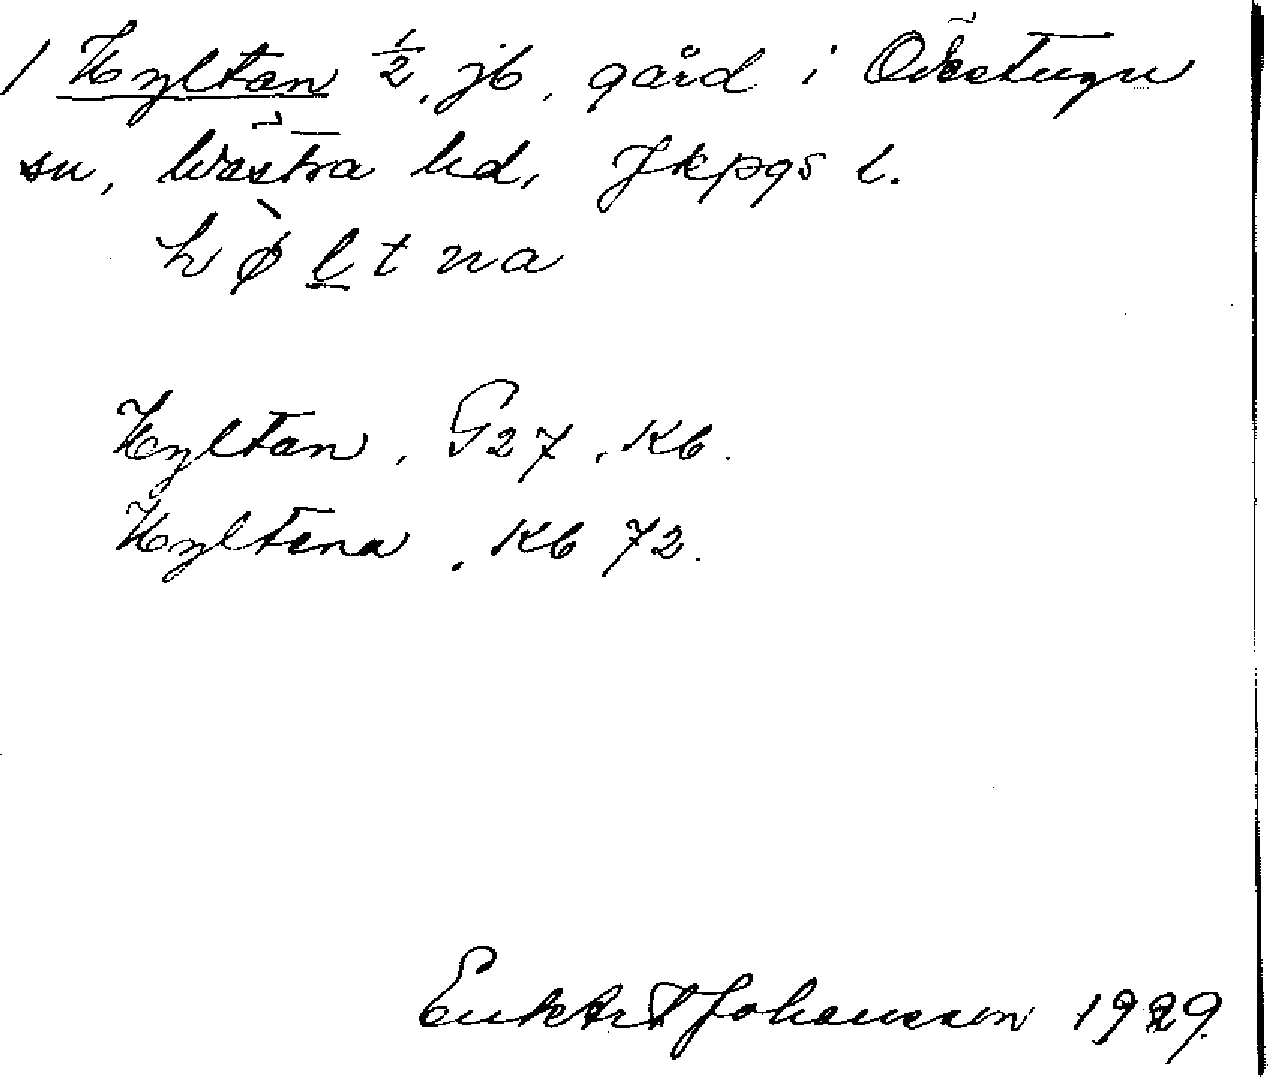 / Hyltan ½, jb, gård i Ödestugu
sn, Västra hd, Jkpgs l.
hø̀ḻtna
Hyltan, G27, Kb.
Hyltena, Kb 72.
Johansson 1929.